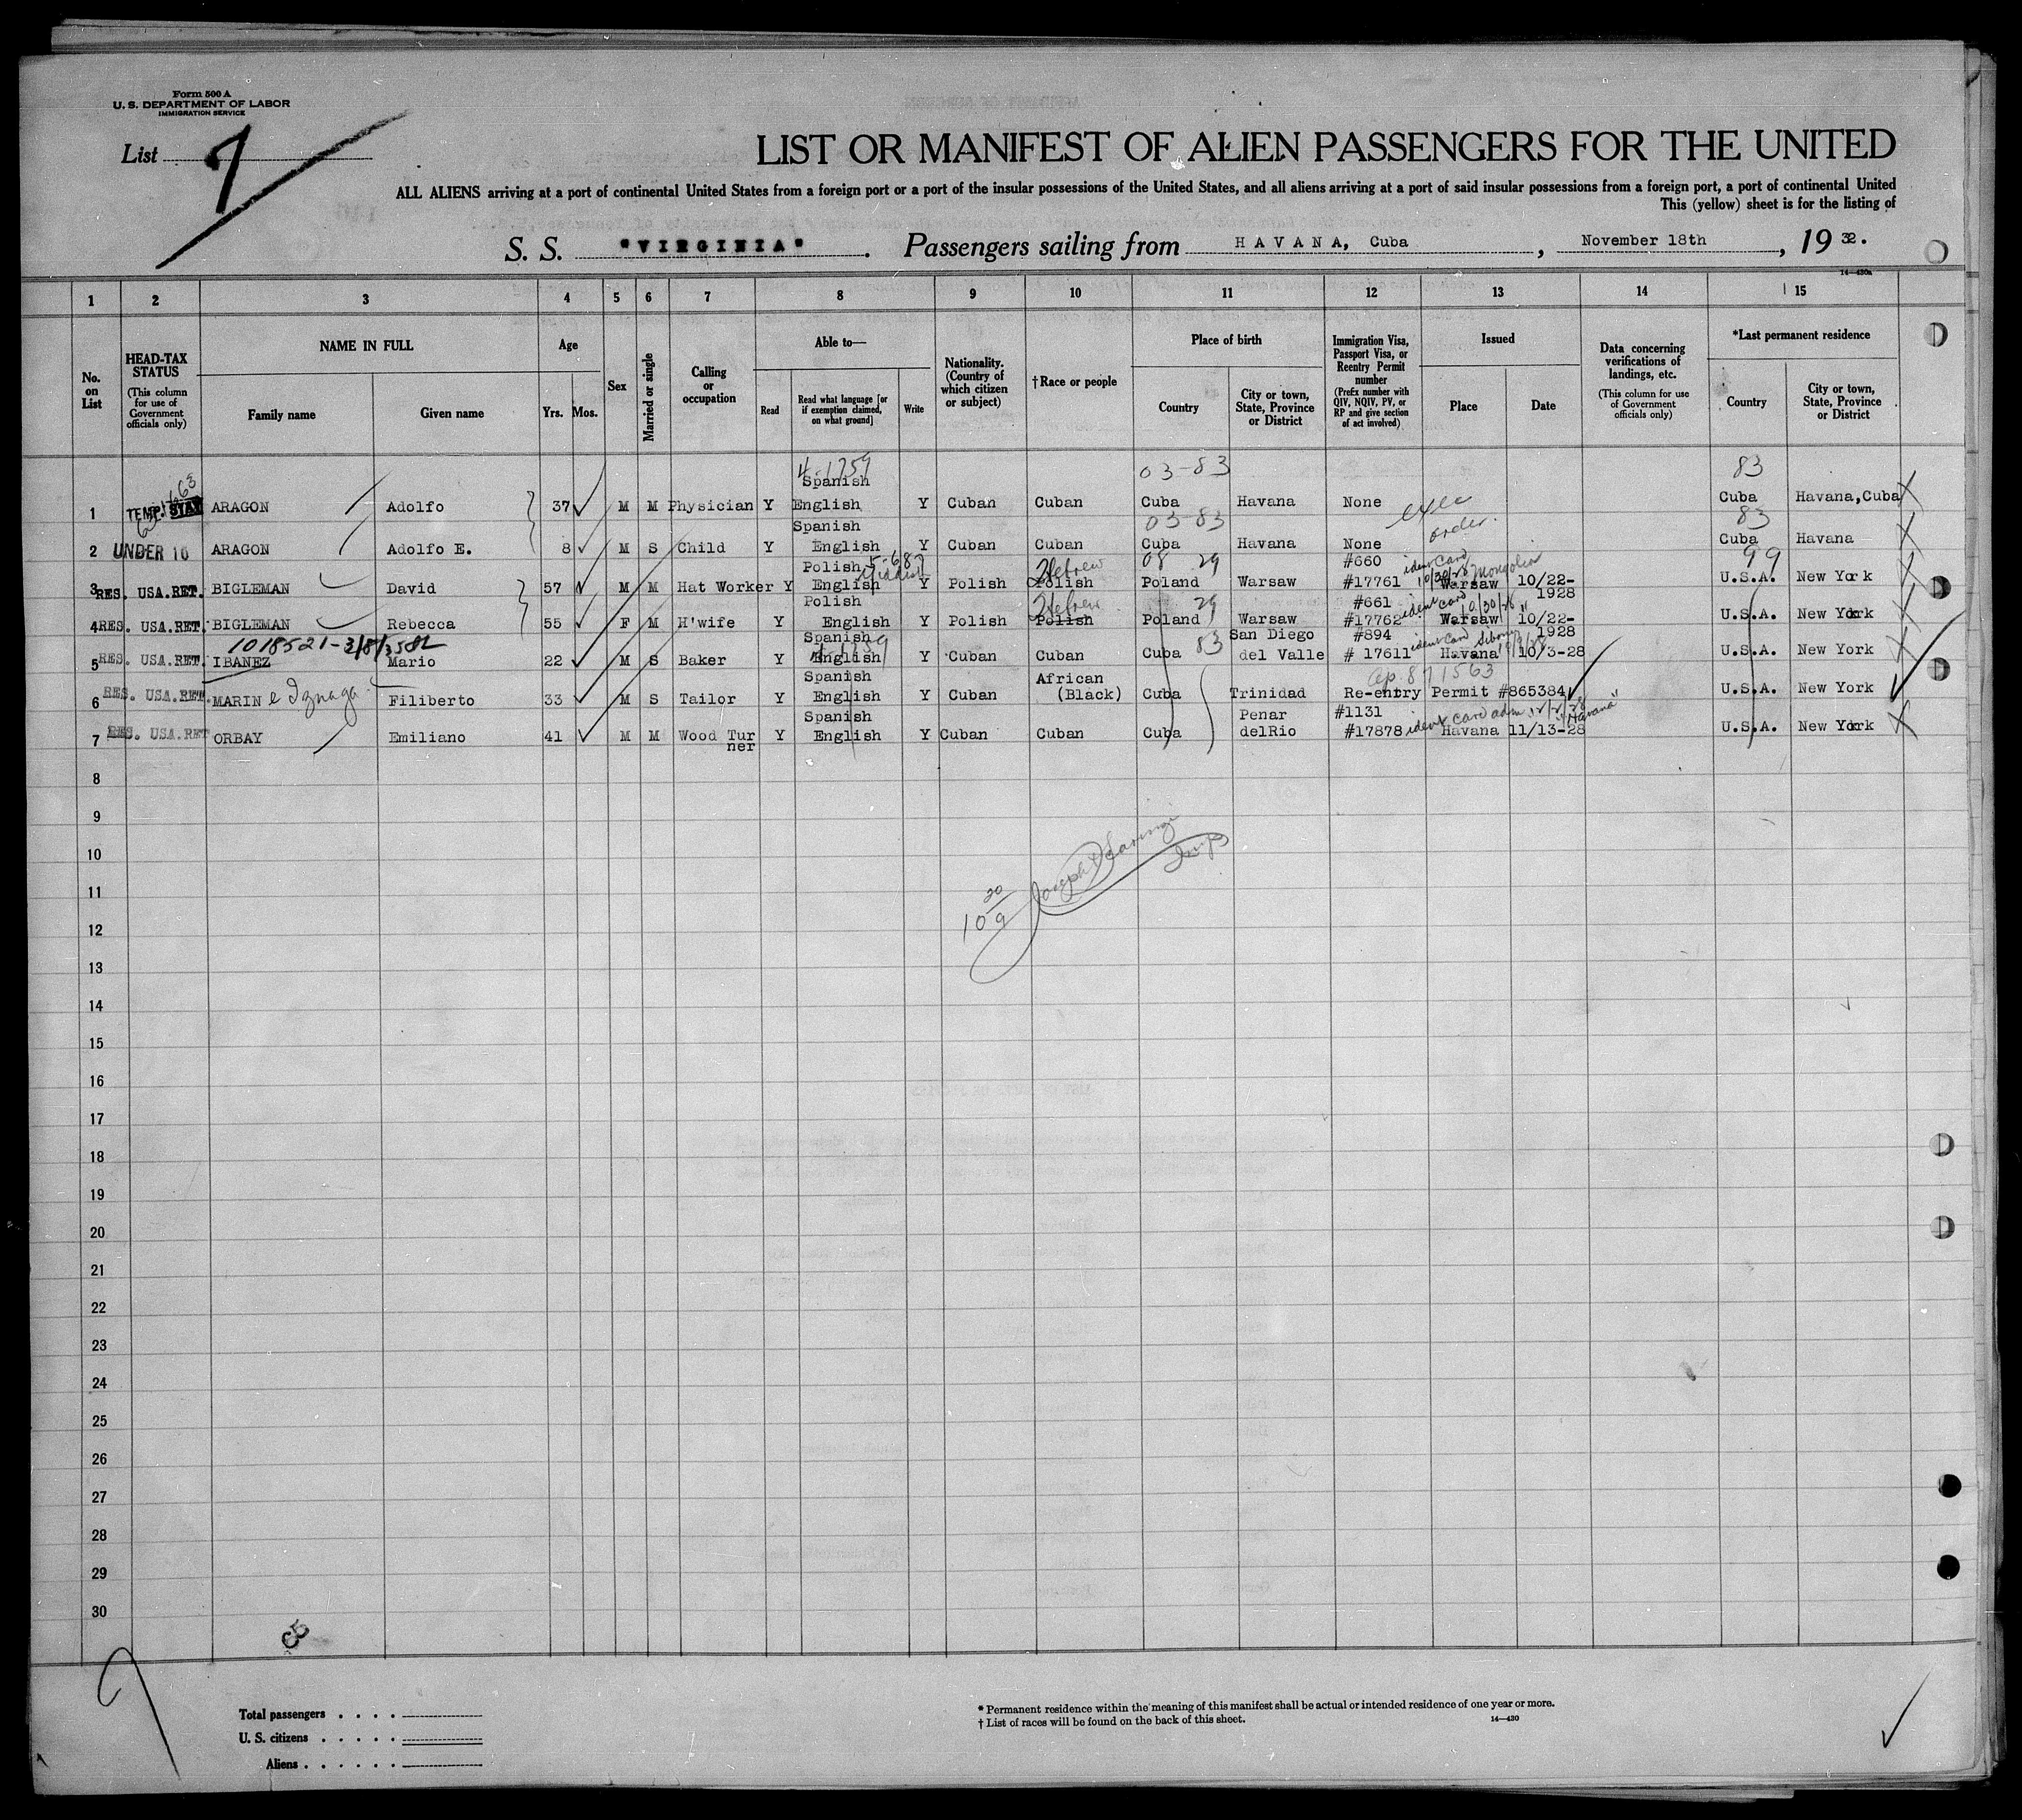 Form 500 A
U. S. DEPARTMENT OF LABOR
IMMIGRATION SERVICE
List 7
LIST OR MANIFEST OF ALIEN PASSENGERS FOR THE UNITED
ALL ALIENS arriving at a port of continental United States from a foreign port or a port of the insular possessions of the United States, and all aliens arriving at a port of said insular possessions from a foreign port, a port of continental United
This (yellow) sheet is for the listing of
S. S. "VIRGINIA". Passengers sailing from HAVANA, Cuba, November 18th, 19 32.
14—430a
1 2 3 4 5 6 7 8 9 10 11 12 13 14 15
No. on List
HEAD-TAX STATUS (This column for use of Government officials only)
NAME IN FULL
Family name Given name
Age
Yrs. Mos.
Sex
Married or single
Calling or occupation
Able to—
Read Read what language [or if exemption claimed, on what ground] Write
Nationality. (Country of which citizen or subject)
†Race or people
Place of birth
Country City or town, State, Province or District
Immigration Visa, Passport Visa, or Reentry Permit number (Prefix number with QIV, NQIV, PV, or RP and give section of act involved)
Issued
Place Date
Data concerning verifications of landings, etc. (This column for use of Government officials only)
*Last permanent residence
Country City or town, State, Province or District
4-1759 03-83 83
Spanish
1 TEMP. ARAGON Adolfo 37 M M Physician Y English Y Cuban Cuban Cuba Havana None Cuba Havana, Cuba
Spanish 03-83 order. 83
2 UNDER 16 ARAGON Adolfo E. 8 M S Child Y English Y Cuban Cuban Cuba Havana None Cuba Havana
Polish Yiddish Hebrew 08 29 #660 ident card 10/30/28 Mongolian 99
3 RES. USA.RET. BIGLEMAN David 57 M M Hat Worker Y English Y Polish Polish Poland Warsaw #17761 Warsaw 10/22-1928 U.S.A. New York
Polish Hebrew 29 #661 ident card 10/30/28 "
4 RES. USA.RET. BIGLEMAN Rebecca 55 F M H'wife Y English Y Polish Polish Poland Warsaw #17762 Warsaw 10/22-1928 U.S.A. New York
1018521-3/8/35 Spanish 83 San Diego #894 ident card
5 RES. USA.RET. IBANEZ Mario 22 M S Baker Y English Y Cuban Cuban Cuba del Valle # 17611 Havana 10/3-28 U.S.A. New York
Spanish African ap. 871563
6 RES. USA.RET. MARIN e Iznaga Filiberto 33 M S Tailor Y English Y Cuban (Black) Cuba Trinidad Re-entry Permit #865384 U.S.A. New York
Spanish Penar #1131 ident card adm. 12/2/28 "Havana"
7 RES. USA.RET ORBAY Emiliano 41 M M Wood Turner Y English Y Cuban Cuban Cuba delRio #17878 Havana 11/13-28 U.S.A. New York
8
9
10
11
12
13
14
15
16
17
18
19
20
21
22
23
24
25
26
27
28
29
30
Total passengers
U. S. citizens
Aliens
* Permanent residence within the meaning of this manifest shall be actual or intended residence of one year or more.
† List of races will be found on the back of this sheet.
14—430